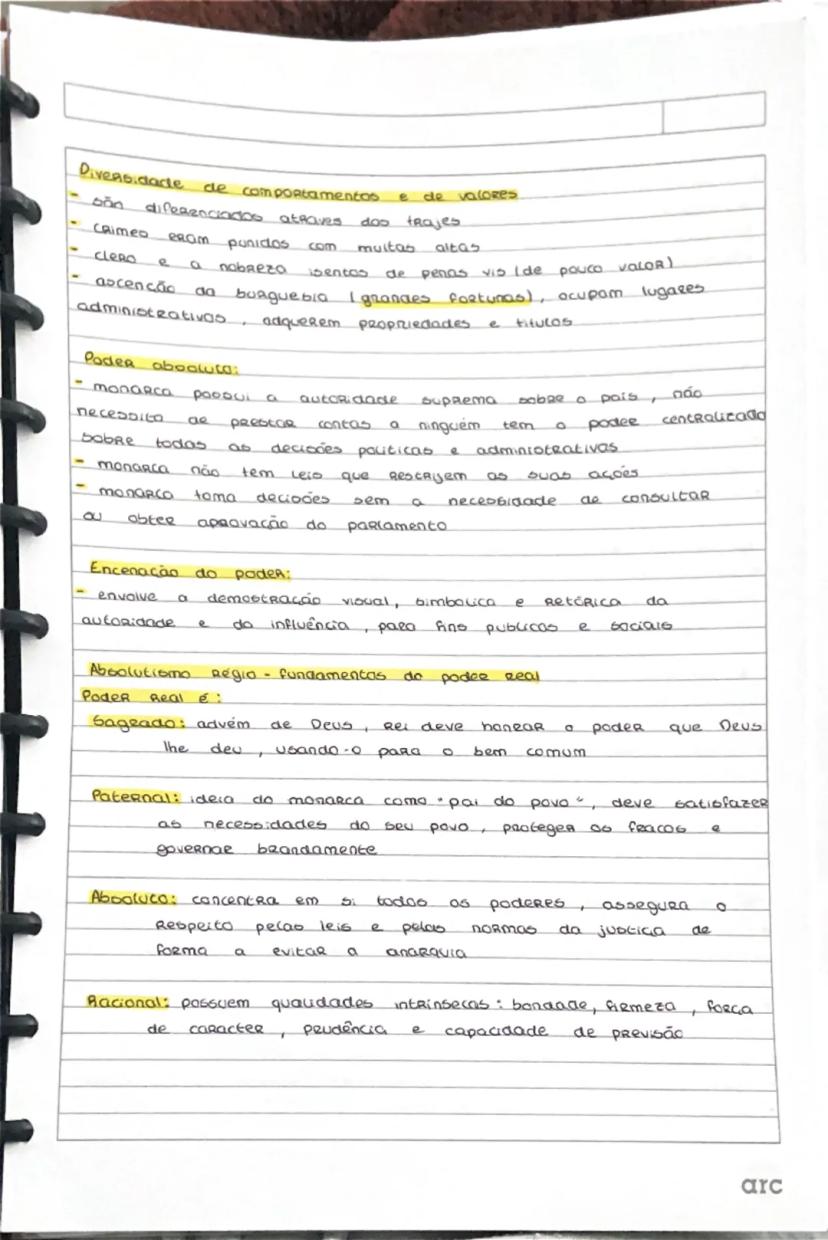 Diversidade de comportamentos e de valores
- são diferenciados atraves dos trajes
- crimes eram punidos com multas altas
- clero e a nobreza isentos de penas vis (de pouco valor)
- ascenção da burguesia (grandes fortunas), ocupam lugares
administrativos, adquerem propriedades e titulos
Poder absoluto:
- monarca possui a autoridade suprema sobre o pais, não
necessita de prestar contas a ninguém tem o poder centralizado
sobre todas as decisões politicas e administrativas
- monarca não tem leis que restrijem as suas ações
- monarca toma decisões sem a necessidade de consultar
ou obter aprovação do parlamento
Encenação do poder:
- envolve a demostração visual, simbolica e retórica da
autoridade e da influência, para fins publicos e sociais
Absolutismo Régio - fundamentos do poder real
Poder Real é:
Sagrado: advém de Deus, rei deve honrar o poder que Deus
lhe deu, usando-o para o bem comum
Paternal: ideia do monarca como "pai do povo", deve satisfazer
as necessidades do seu povo, proteger os fracos e
governar brandamente
Absoluto: concentra em si todos os poderes, assegura o
respeito pelas leis e pelas normas da justica de
forma a evitar a anarquia
Racional: possuem qualidades intrinsecas: bondade, firmeza, força
de caracter, prudência e capacidade de previsão
arc